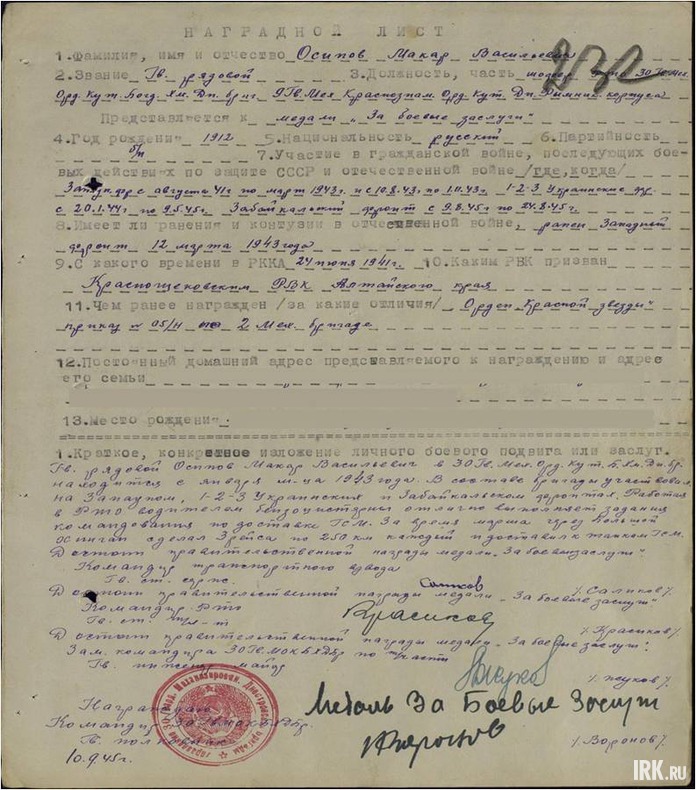 НАГРАДНОЙ ЛИСТ
1.Фамилия, имя и отчество Осипов Макар Васильевич
2.Звание Гв. рядовой 3.Должность, часть шофер 30 Гв. Мех.
Орд. Кут. Богд. Хм. Дн. бриг. 9 Гв. Мех Краснознам. Орд. Кут. Дн. Римник. корпуса
Представляется к медали „За боевые заслуги"
4.Год рождения 1912 5.Национальность русский 6.Партийность
б/п 7.Участие в гражданской войне, последующих бое-
вых действиях по защите СССР и отечественной войне /где,когда/
Зап. фр с августа 41г по март 1943г. и с 10.8.43. по 1.11.43г. 1-2-3 Украинские фр.
с 20.1.44г по 9.5.45г. Забайкальский фронт с 9.8.45г по 24.8.45г.
8.Имеет ли ранения и контузии в отечественной войне, ранен Западный
фронт 12 марта 1943 года
9.С какого времени в РККА 24 июня 1941г. 10.Каким РВК призван
Краснощековским РВК Алтайского края
11.Чем ранее награжден /за какие отличия/ Орден „Красной звезды"
приказ № 05/н по 2 мех. бригаде
12.Постоянный домашний адрес представляемого к награждению и адрес
его семьи
13.Место рождения
1.Краткое, конкретное изложение личного боевого подвига или заслуг.
Гв. рядовой Осипов Макар Васильевич в 30 Гв. Мех. Орд. Кут. Б. Хм. Дн. Бр.
находится с января м-ца 1943 года. В составе бригады участвовал
на Западном, 1-2-3 Украинских и Забайкальском фронтах. Работая
в РТО водителем бензоцистерны отлично выполняет задания
командования по доставке ГСМ. За время марша через Большой
Хинган сделал 3 рейса по 250 км каждый и доставил к танкам ГСМ.
Достоин правительственной награды медали „За боевые заслуги".
Командир транспортного взвода
Гв. ст. серж. Саликов /Саликов/.
Достоин правительственной награды медали „За боевые заслуги"
Командир РТО
Гв. ст. Красиков /Красиков/.
Достоин правительственной награды медали „За боевые заслуги".
Зам. командира 30 Гв МОКБХДБр по т/части
Гв. инженер майор
Награждаю Медаль За Боевые Заслуги
Командир 30 Гв МОКБХДБр.
Гв. полковник Воронов /Воронов/.
10.9.45г.
IRK.RU